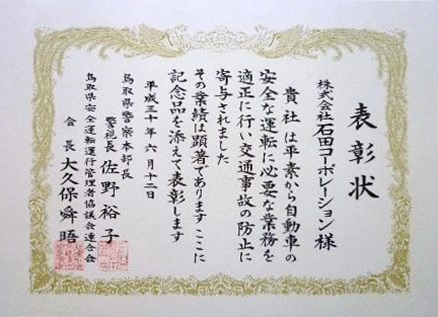 表彰状
株式会社石田コーポレーション様
貴社は平素から自動車の
安全な運転に必要な業務を
適正に行い交通事故の防止に
寄与されました
その業績は顕著であります ここに
記念品を添えて表彰します
平成三十年六月十二日
鳥取県警察本部長
警視長 佐野裕子
鳥取県安全運転運行管理者協議会連合会
会長 大久保舜晤